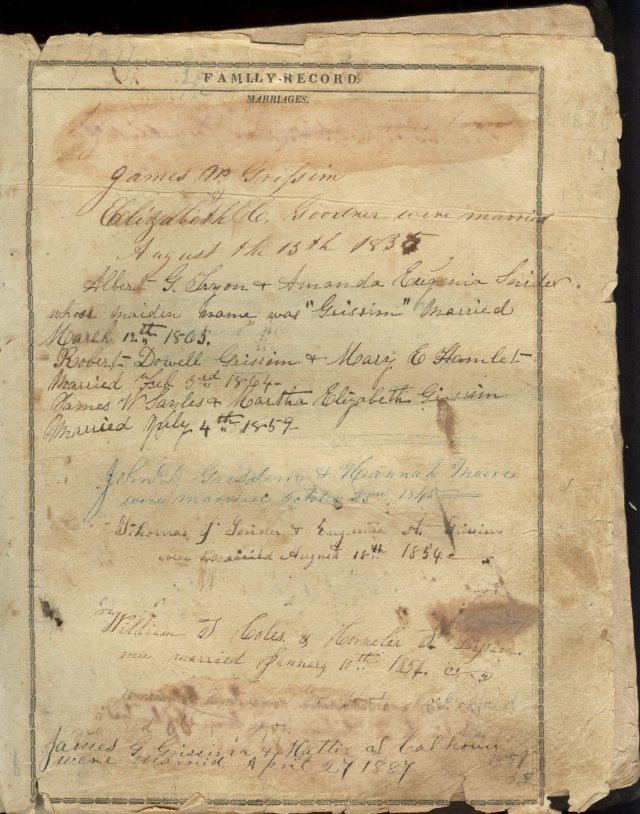 FAMILY RECORD
MARRIAGES.
James W. Grissim
&
Elizabeth C. Goodner were married
August the 13th 1835
Albert G. Tryon & Amanda Eugenia Snider
whose maiden name was "Grissim" Married
March 12th 1863.
Robert Dowell Grissim & Mary E Hamlet
Married Feb 3rd 1864
James W Sayles & Martha Elizabeth Grissim
Married July 4th 1859
John D Grissim & Hannah Moore
were married October 23rd 1845
Thomas J Snider & Eugenia A. Grissim
were married August 18th 1854
William T Coles & T
were married January 10th 1854.
married
James G Grissim & Hattie S Calhoun
were married April 27 1887